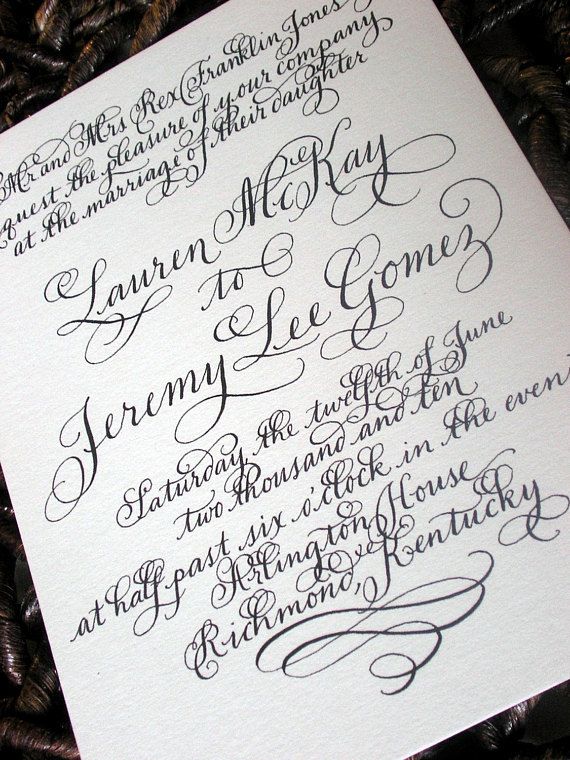 Mr and Mrs Rex Franklin Jones
quest the pleasure of your company
at the marriage of their daughter
Lauren McKay
to
Jeremy Lee Gomez
Saturday the twelfth of June
two thousand and ten
at half past six o'clock in the even
Arlington House
Richmond, Kentucky